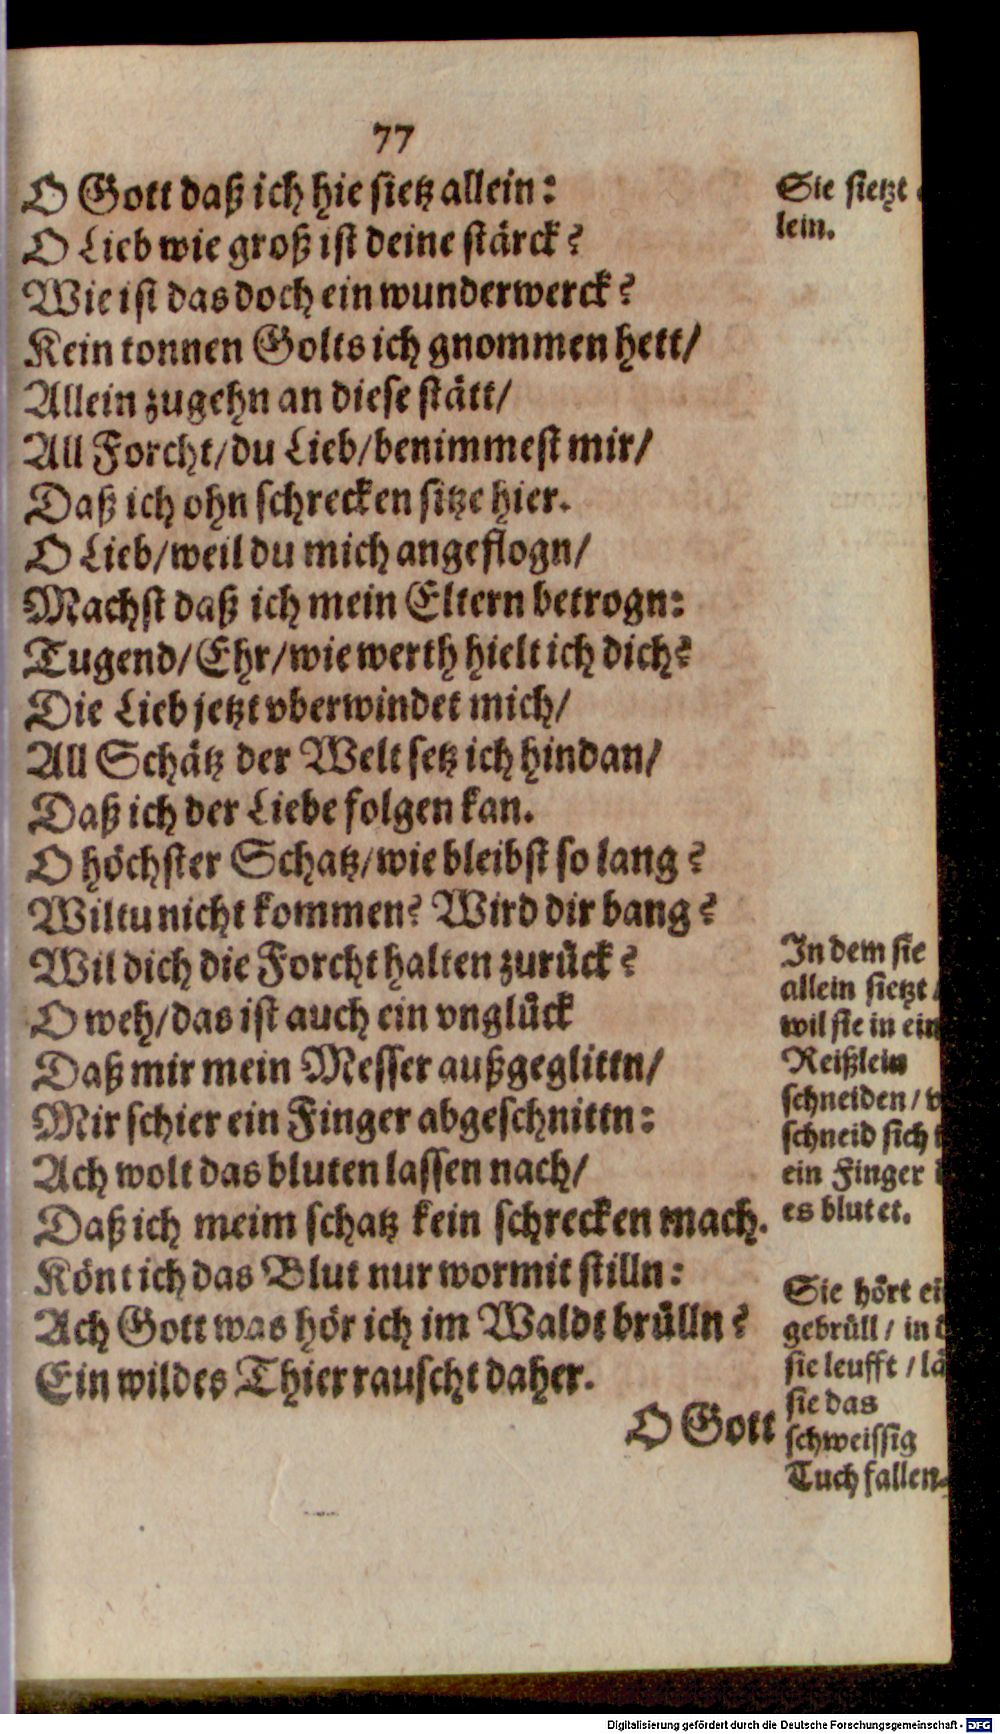 77
O Gott daß ich hie sietz allein:
O Lieb wie groß ist deine stärck?
Wie ist das doch ein wunderwerck?
Kein tonnen Golts ich gnommen hett/
Allein zugehn an diese stätt/
All Forcht/du Lieb/benimmest mir/
Daß ich ohn schrecken sitze hier.
O Lieb/weil du mich angeflogn/
Machst daß ich mein Eltern betrogn:
Tugend/Ehr/wie werth hielt ich dich?
Die Lieb jetzt vberwindet mich/
All Schätz der Welt setz ich hindan/
Daß ich der Liebe folgen kan.
O höchster Schatz/wie bleibst so lang?
Wiltu nicht kommen? Wird dir bang?
Wil dich die Forcht halten zurück?
O weh/das ist auch ein vnglück
Daß mir mein Messer außgeglittn/
Mir schier ein Finger abgeschnittn:
Ach wolt das bluten lassen nach/
Daß ich meim schatz kein schrecken mach.
Könt ich das Blut nur wormit stilln:
Ach Gott was hör ich im Waldt brülln?
Ein wildes Thier rauscht daher.
O Gott
Sie sietzt
lein.
In dem sie
allein sietzt/
wil sie in ein
Reißlein
schneiden/
schneid sich
ein Finger
es blutet.
Sie hört
gebrüll/ in
sie leufft/
sie das
schweissig
Tuch fallen.
Digitalisierung gefördert durch die Deutsche Forschungsgemeinschaft - DFG